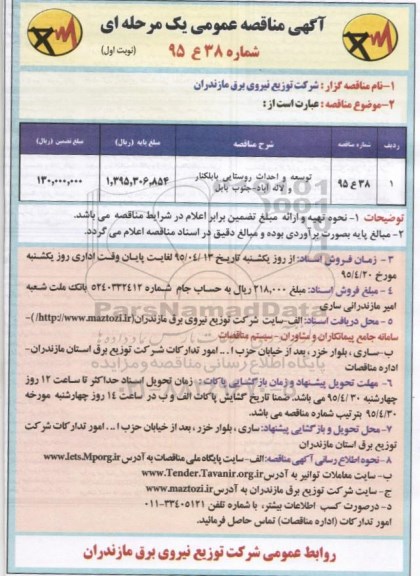 آگهی مناقصه عمومی یک مرحله ای
شماره ۳۸ ع ۹۵
(نوبت اول)
۱-نام مناقصه گزار : شرکت توزیع نیروی برق مازندران
۲-موضوع مناقصه : عبارت است از :
ردیف شماره مناقصه شرح مناقصه مبلغ پایه (ریال) مبلغ تضمین (ریال)
۱ ۳۸ ع ۹۵ توسعه و احداث روستایی بابلکنار ۱,۳۹۵,۳۰۶,۸۵۴ ۱۳۰,۰۰۰,۰۰۰
و لاله آباد-جنوب بابل
توضیحات ۱- نحوه تهیه و ارائه مبلغ تضمین برابر اعلام در شرایط مناقصه می باشد.
۲- مبالغ پایه بصورت برآوردی بوده و مبالغ دقیق در اسناد مناقصه اعلام می گردد.
۳- زمـان فـروش اسناد: از روز یکشنبه تاریـخ ۹۵/۰۴/۱۳ لغایت پایان وقت اداری روز یکشنبه
مورخ ۹۵/۴/۲۰
۴- مبلغ فروش اسناد: مبلغ ۲۱۸,۰۰۰ ریال به حساب جام شماره ۵۲۴۰۳۳۴۱۲ بانک ملت شعبه
امیر مازندرانی ساری
۵- محل دریافت اسناد: الف-سایت شرکت توزیع نیروی برق مازندران (http://www.maztozi.ir/)-
سامانه جامع پیمانکاران و مشاوران - سیستم مناقصات
ParsNamadData
پایگاه اطلاع رسانی مناقصه و مزایده
ب-ساری، بلوار خزر، بعد از خیابان حزب ا... امور تدارکات شرکت توزیع برق استان مازندران-
اداره مناقصات
۶- مهلت تحویل پیشنهاد و زمان بازگشایی پاکات : زمان تحویل اسناد حداکثر تا ساعت ۱۲ روز
چهارشنبه ۹۵/۴/۳۰ می باشد. ضمنا تاریخ گشایش پاکات الف و ب در ساعت ۱۴ روز چهارشنبه مورخه
۹۵/۴/۳۰ بترتیب شماره مناقصه می باشد.
۷- محل تحویل و بازگشایی پیشنهاد: ساری، بلوار خزر، بعد از خیابان حزب ا... امور تدارکات شرکت
توزیع برق استان مازندران
۸-نحوه اطلاع رسانی آگهی مناقصه: الف-سایت پایگاه ملی مناقصات به آدرس www.iets.Mporg.ir
ب- سایت معاملات توانیر به آدرس www.Tender.Tavanir.org.ir
ج- سایت شرکت توزیع برق مازندران به آدرس www.maztozi.ir
د- درصورت کسب اطلاعات بیشتر، با شماره تلفن ۳۳۴۰۵۱۲۱-۰۱۱
امور تدارکات (اداره مناقصات) تماس حاصل فرمائید.
روابط عمومی شرکت توزیع نیروی برق مازندران